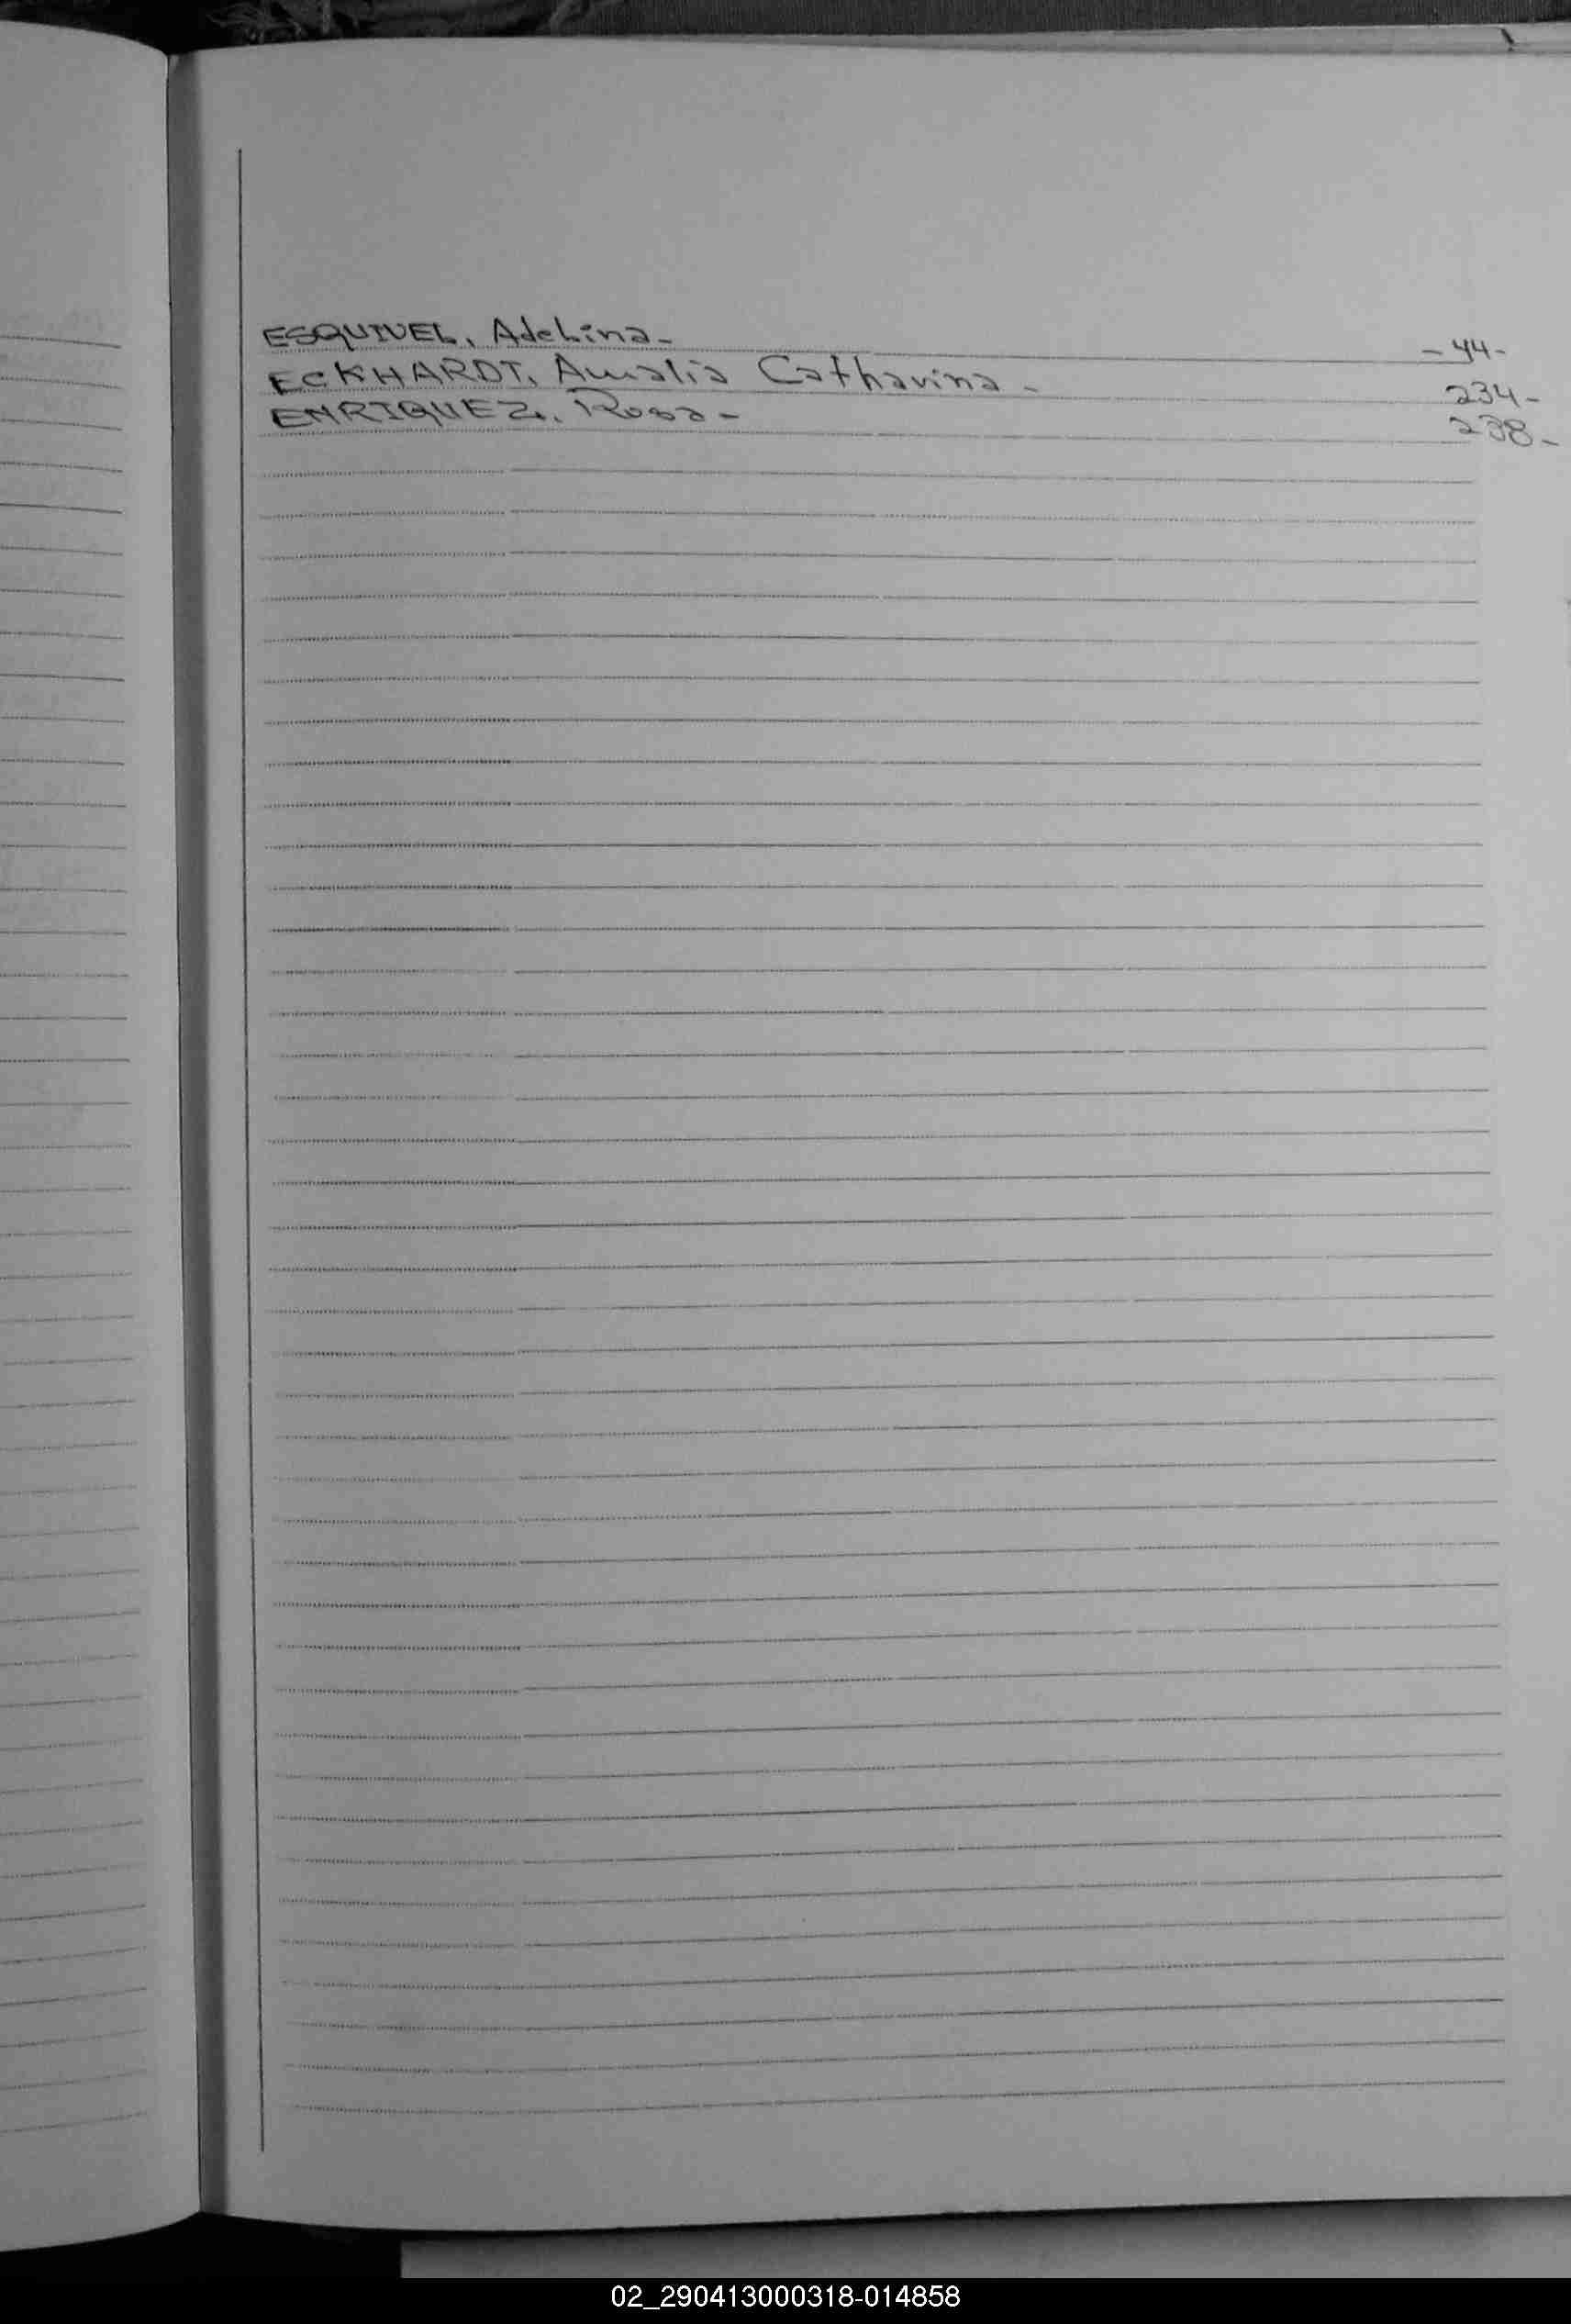 ESQUIVEL, Adelina- -44-
ECKHARDT, Amalia Catharina- 234-
ENRIQUEZ, Rosa- 238-
02_290413000318-014858